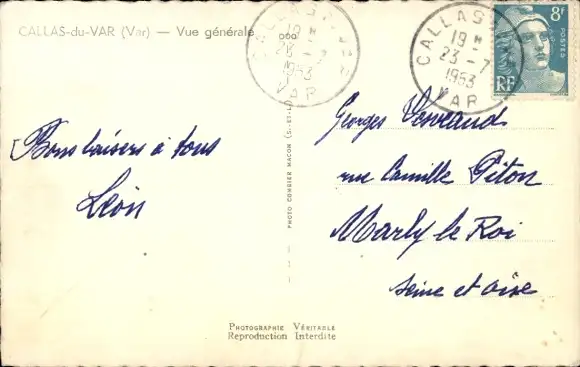 CALLAS-du-VAR (Var) — Vue générale
CALLAS
19 H
23 - 7
1953
VAR
CALLAS
19 H
23 - 7
1953
VAR
8f
POSTES
RF
Bons baisers à tous
Léon
PHOTO COMBIER MACON (S.-ET-L.)
Georges
rue Camille Piton
Marly le Roi
Seine et Oise
Photographie Véritable
Reproduction Interdite